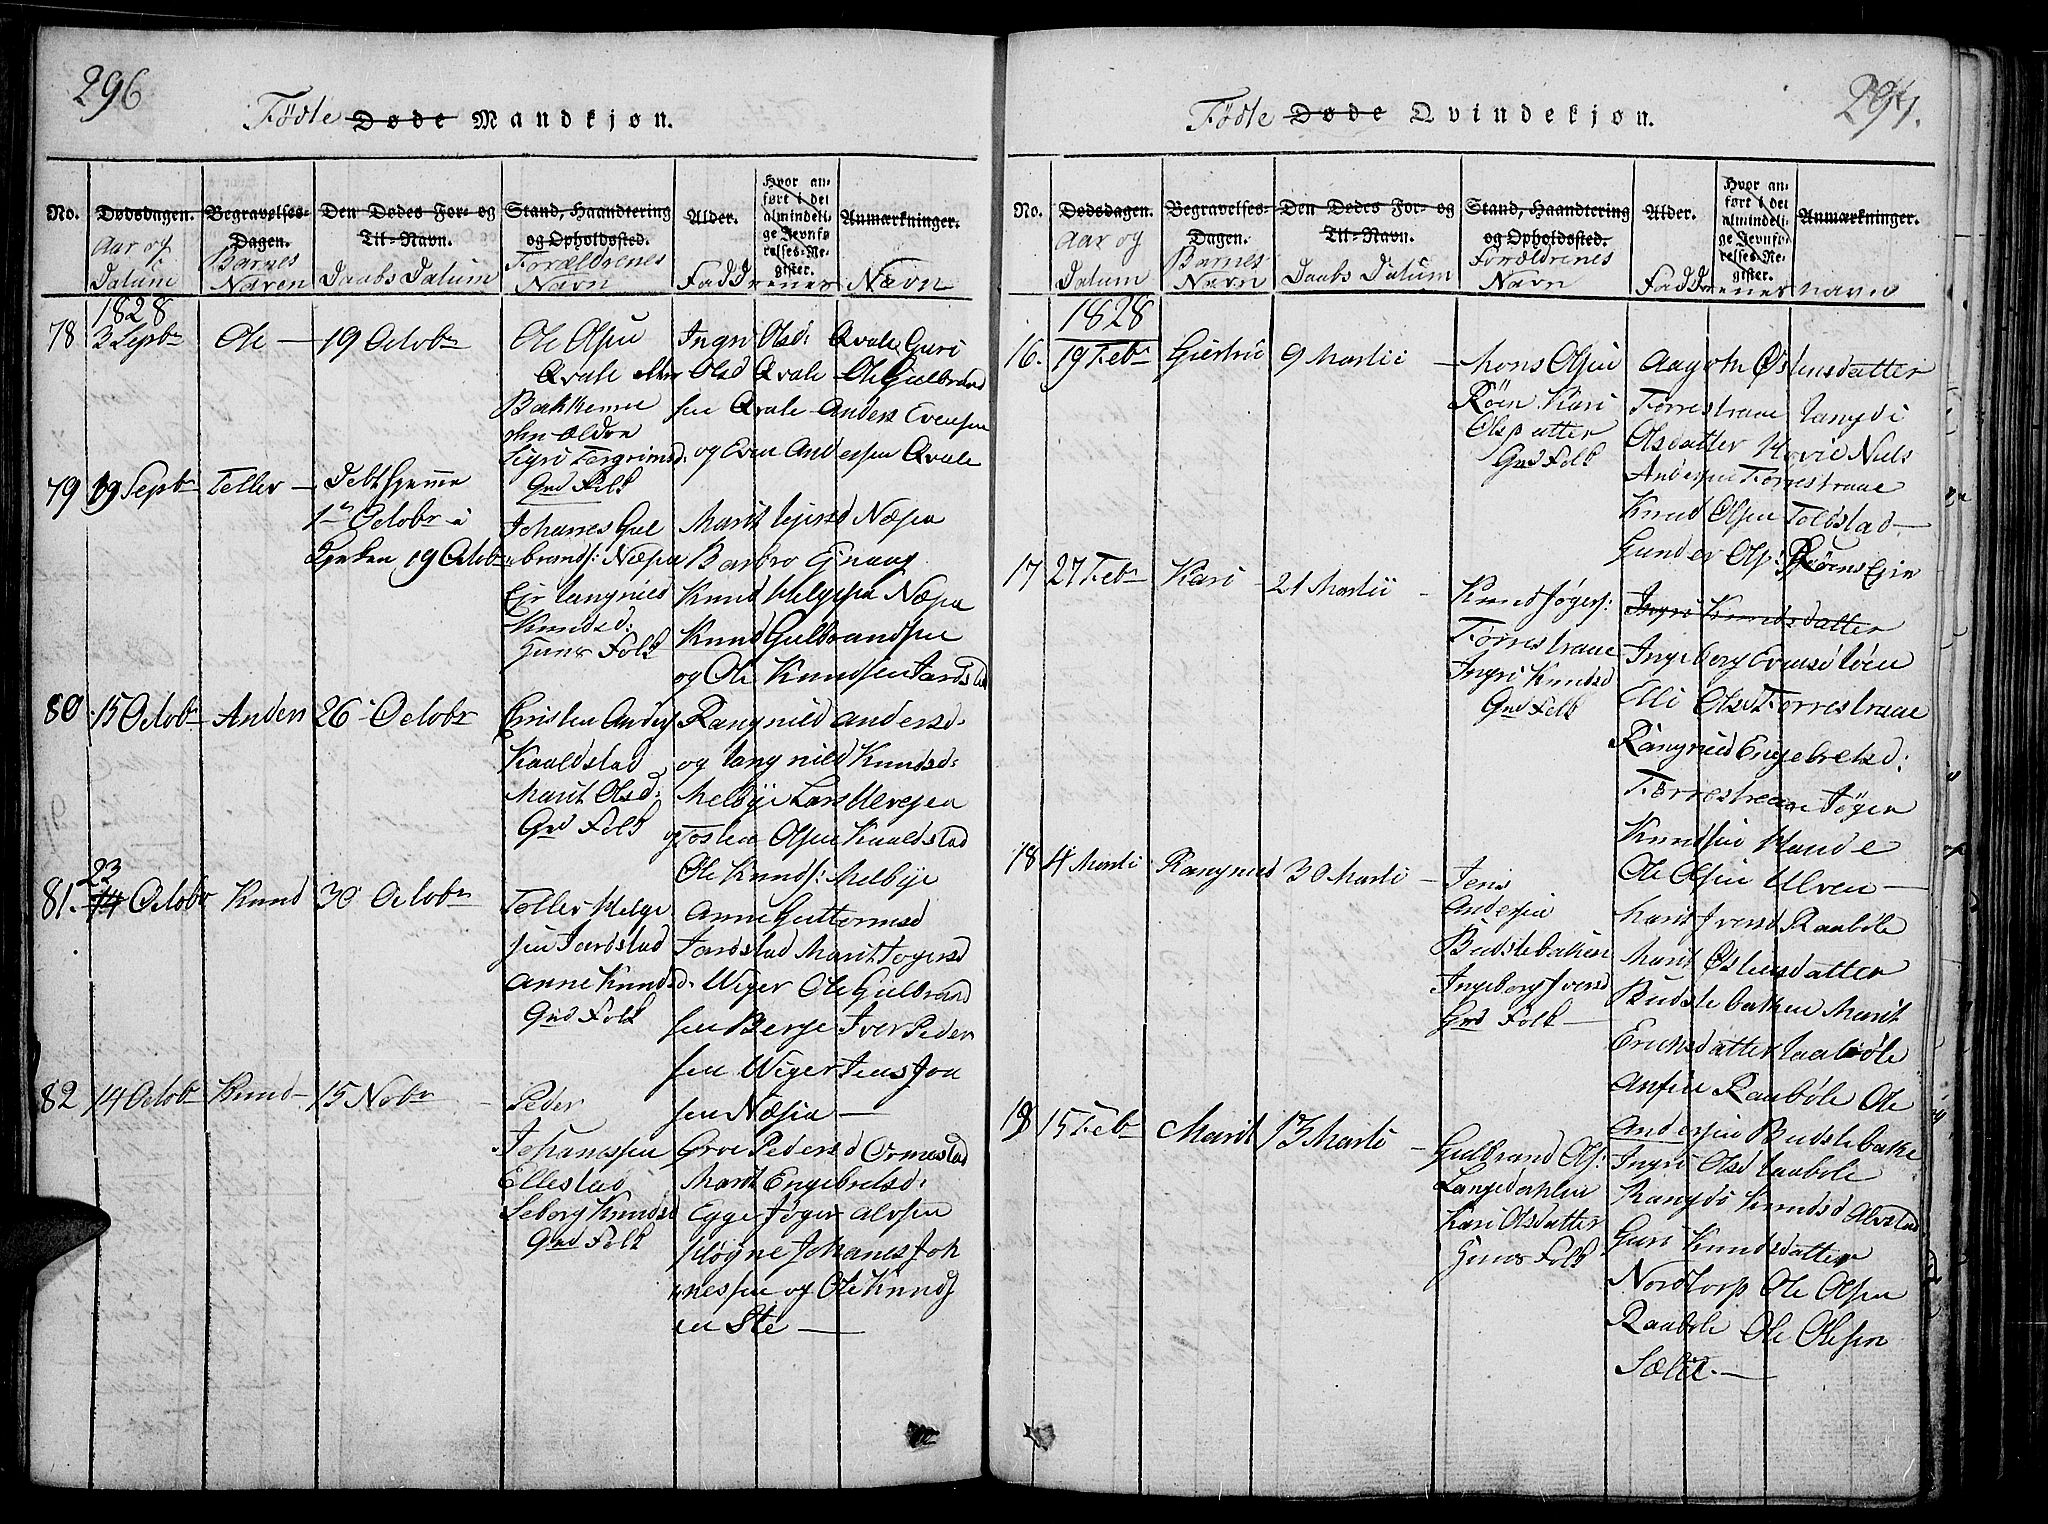 296
Fødte Døde Mandkjøn.
No.
Dødsdagen.
Aar og
Datum
Begravelses-
Dagen.
Barnes
Naven
Den Dødes For- og
Til-Navn.
Daabs Datum
Stand, Haandtering
og Opholdssted.
Forældrenes
Navn
Alder.
Hvor an-
ført i det
almindeli-
ge Jevnfø-
relses-Re-
gister.
Anmærkninger.
Faddrenes Navn
1828
78 3 Septbr Ole 19 Octobr
Ole Olsen
Qvale
Bakkemoe
Sigri Torgrimsd.
Gmd Folk
Ingri Olsd: Qvale Guri
Olsd Qvale Ole Gulbrand
sen Qvale Anders Evensen
og Even Andersen Qvale
79 19 Septbr Tellev
Døbt hjemme
1te Octobr i
Kirken 19 Octobr
Johannes Gul
brands: Næsen
Eje Rangnild
Knudsd:
Huus Folk
Marit Næsen
Barbro
Knud Helgesen Næsen
Knud Gulbrandsen
og Ole Knudsen Jardstad
80 15 Octobr Anders 26 Octobr
Christen Anders
Kaaldstad
Marit Olsd:
Gmd Folk
Rangnild Andersd.
og Rangnild Knudsd:
Melbye Lars Ulvesen
og Tosten Olsen Kaaldstad
Ole Knuds: Melbye
81. 23 14 Octobr Knud 30 Octobr
Tollev Helge
sen Jardstad
Anne Knudsd.
Gmd Folk
Anne Guttormsd
Jardstad Marit Jogersd
Wiger Ole Gulbrand
sen Berge Iver Peder
sen Wiger Jens Jon
sen Næsen
82 14 Octobr Knud 15 Nobr
Peder
Johanesen
Ellestad
Seborg Knudsd
Gmd Folk
Groe Pedersd Ormestad
Marit Engebretsd.
Egge Jøger Alvsen
Høgne Johanes Joh
anesen og Ole Knuds
en Ste
297.
Fødte Døde Qvindekjøn.
No.
Dødsdagen.
Aar og
Datum
Begravelses-
Dagen.
Barnes
Navn
Den Dødes For- og
Til-Navn.
Daabs Datum
Stand, Haandtering
og Opholdssted.
Forældrenes
Navn
Alder.
Hvor an-
ført i det
almindeli-
ge Jevnfø-
relses-Re-
gister.
Anmærkninger.
Faddrenes navne
1828
16. 19 Febr Giertrü 9 Martii
Mons Olsen
Røen Kari
Olsdatter
Gmd Folk
Aagoth Østensdatter
Førrestraae Rangdi
Olsdatter Hovie Niels
Andersen Førrestraae
Knud Olsen Tolbstad
Gunder Ols: Røens Eje
17 27 Febr Kari 21 Martii
Knud Jøgers:
Førrestraae
Ingri Knudsd
Gmd Folk
Ingri Knudsdatter
Ingeborg Evensd Røen
Elli Olsd Førrestraae
Rangnild Engebretsd:
Førrestraae Jøger
Knudsen Hande
Ole Olsen Ulven
18 4 Marti Rangnild 30 Marti
Jens
Andersen
Budslebakken
Ingeborg Iversd
Gmd Folk
Marit Iversd Raabøle
Marit Østensdatter
Budslebakken Marit
Ericksdatter Raabøle
Raabøle Ole
Andersen Budslebakke
19 15 Febr Marit 13 Marti
Gulbrand Ols:
Langedahlen
Kari Olsdatter
Huus Folk
Ingri Olsd Raabøle
Rangdi Knudsd Alvstad
Guri Knudsdatter
Nordtorp Ole Olsen
Raabøle Ole Olesen